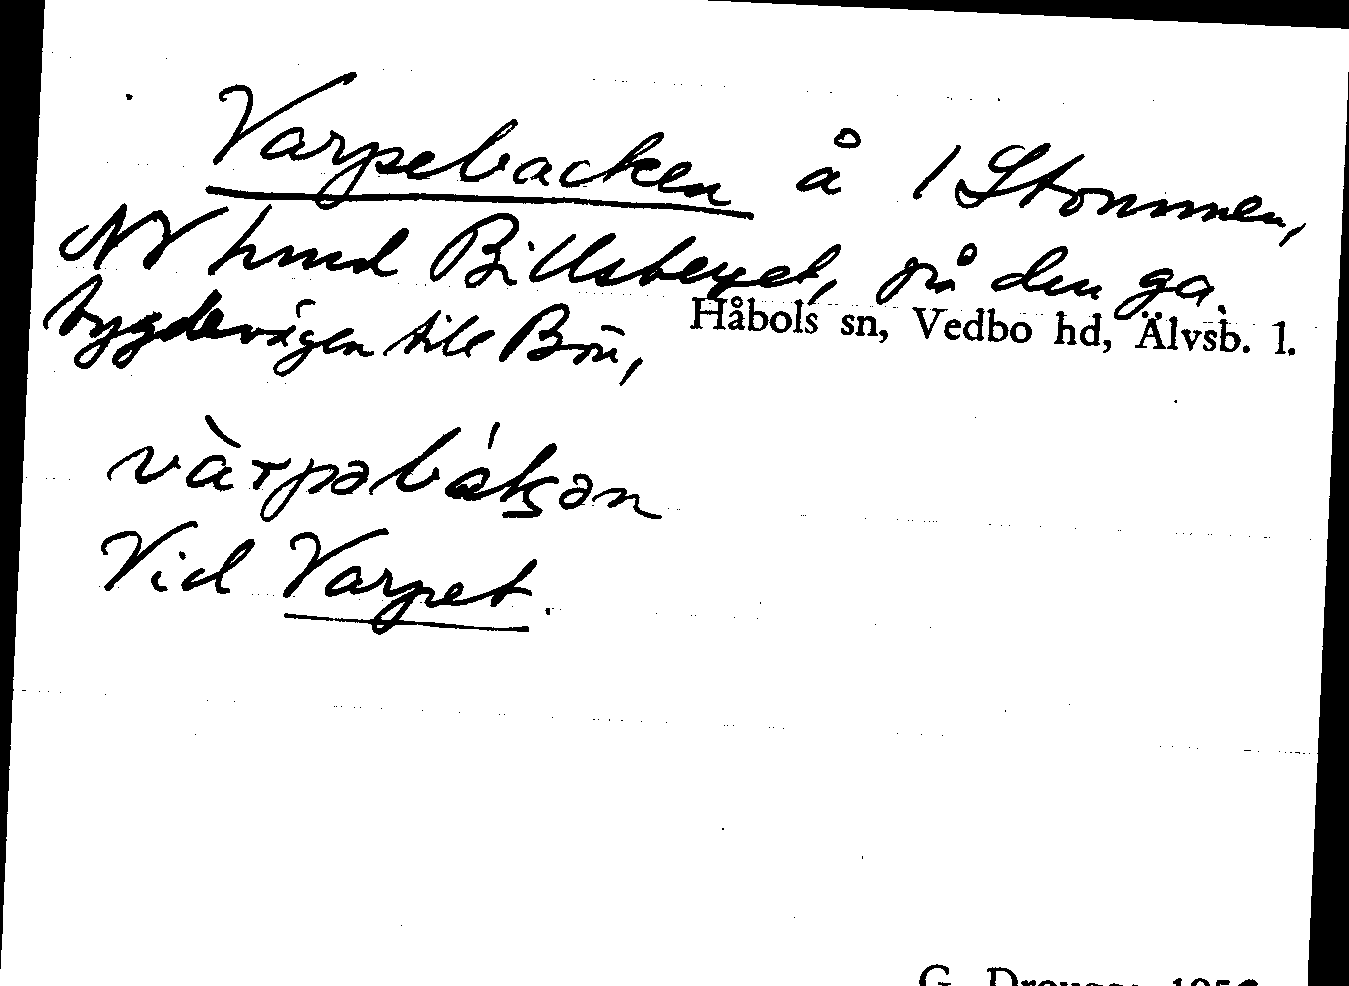 Varpebacken å 1 Stommen,
NV hund Billsberget, på den ga.
bygdevägen till Bön,
Håbols sn, Vedbo hd, Älvsb. l.
vàrpəbákʂən
Vid Varpet.
G. Drougge 1956